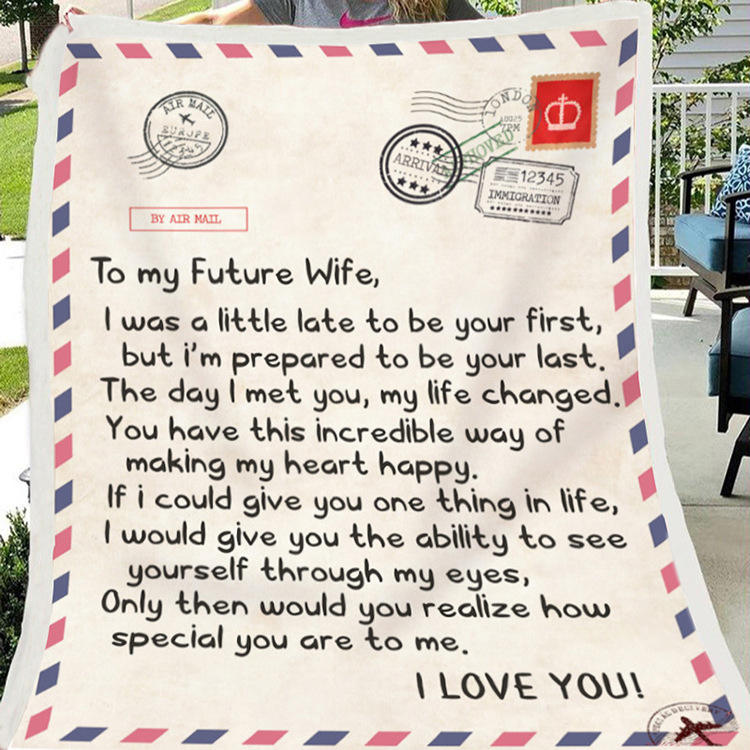 AIR MAIL
EUROPE
LONDON
ARRIVAL
12345
IMMIGRATION
BY AIR MAIL
To my Future Wife,
I was a little late to be your first,
but i'm prepared to be your last.
The day I met you, my life changed.
You have this incredible way of
making my heart happy.
If i could give you one thing in life,
I would give you the ability to see
yourself through my eyes,
Only then would you realize how
special you are to me.
I LOVE YOU!